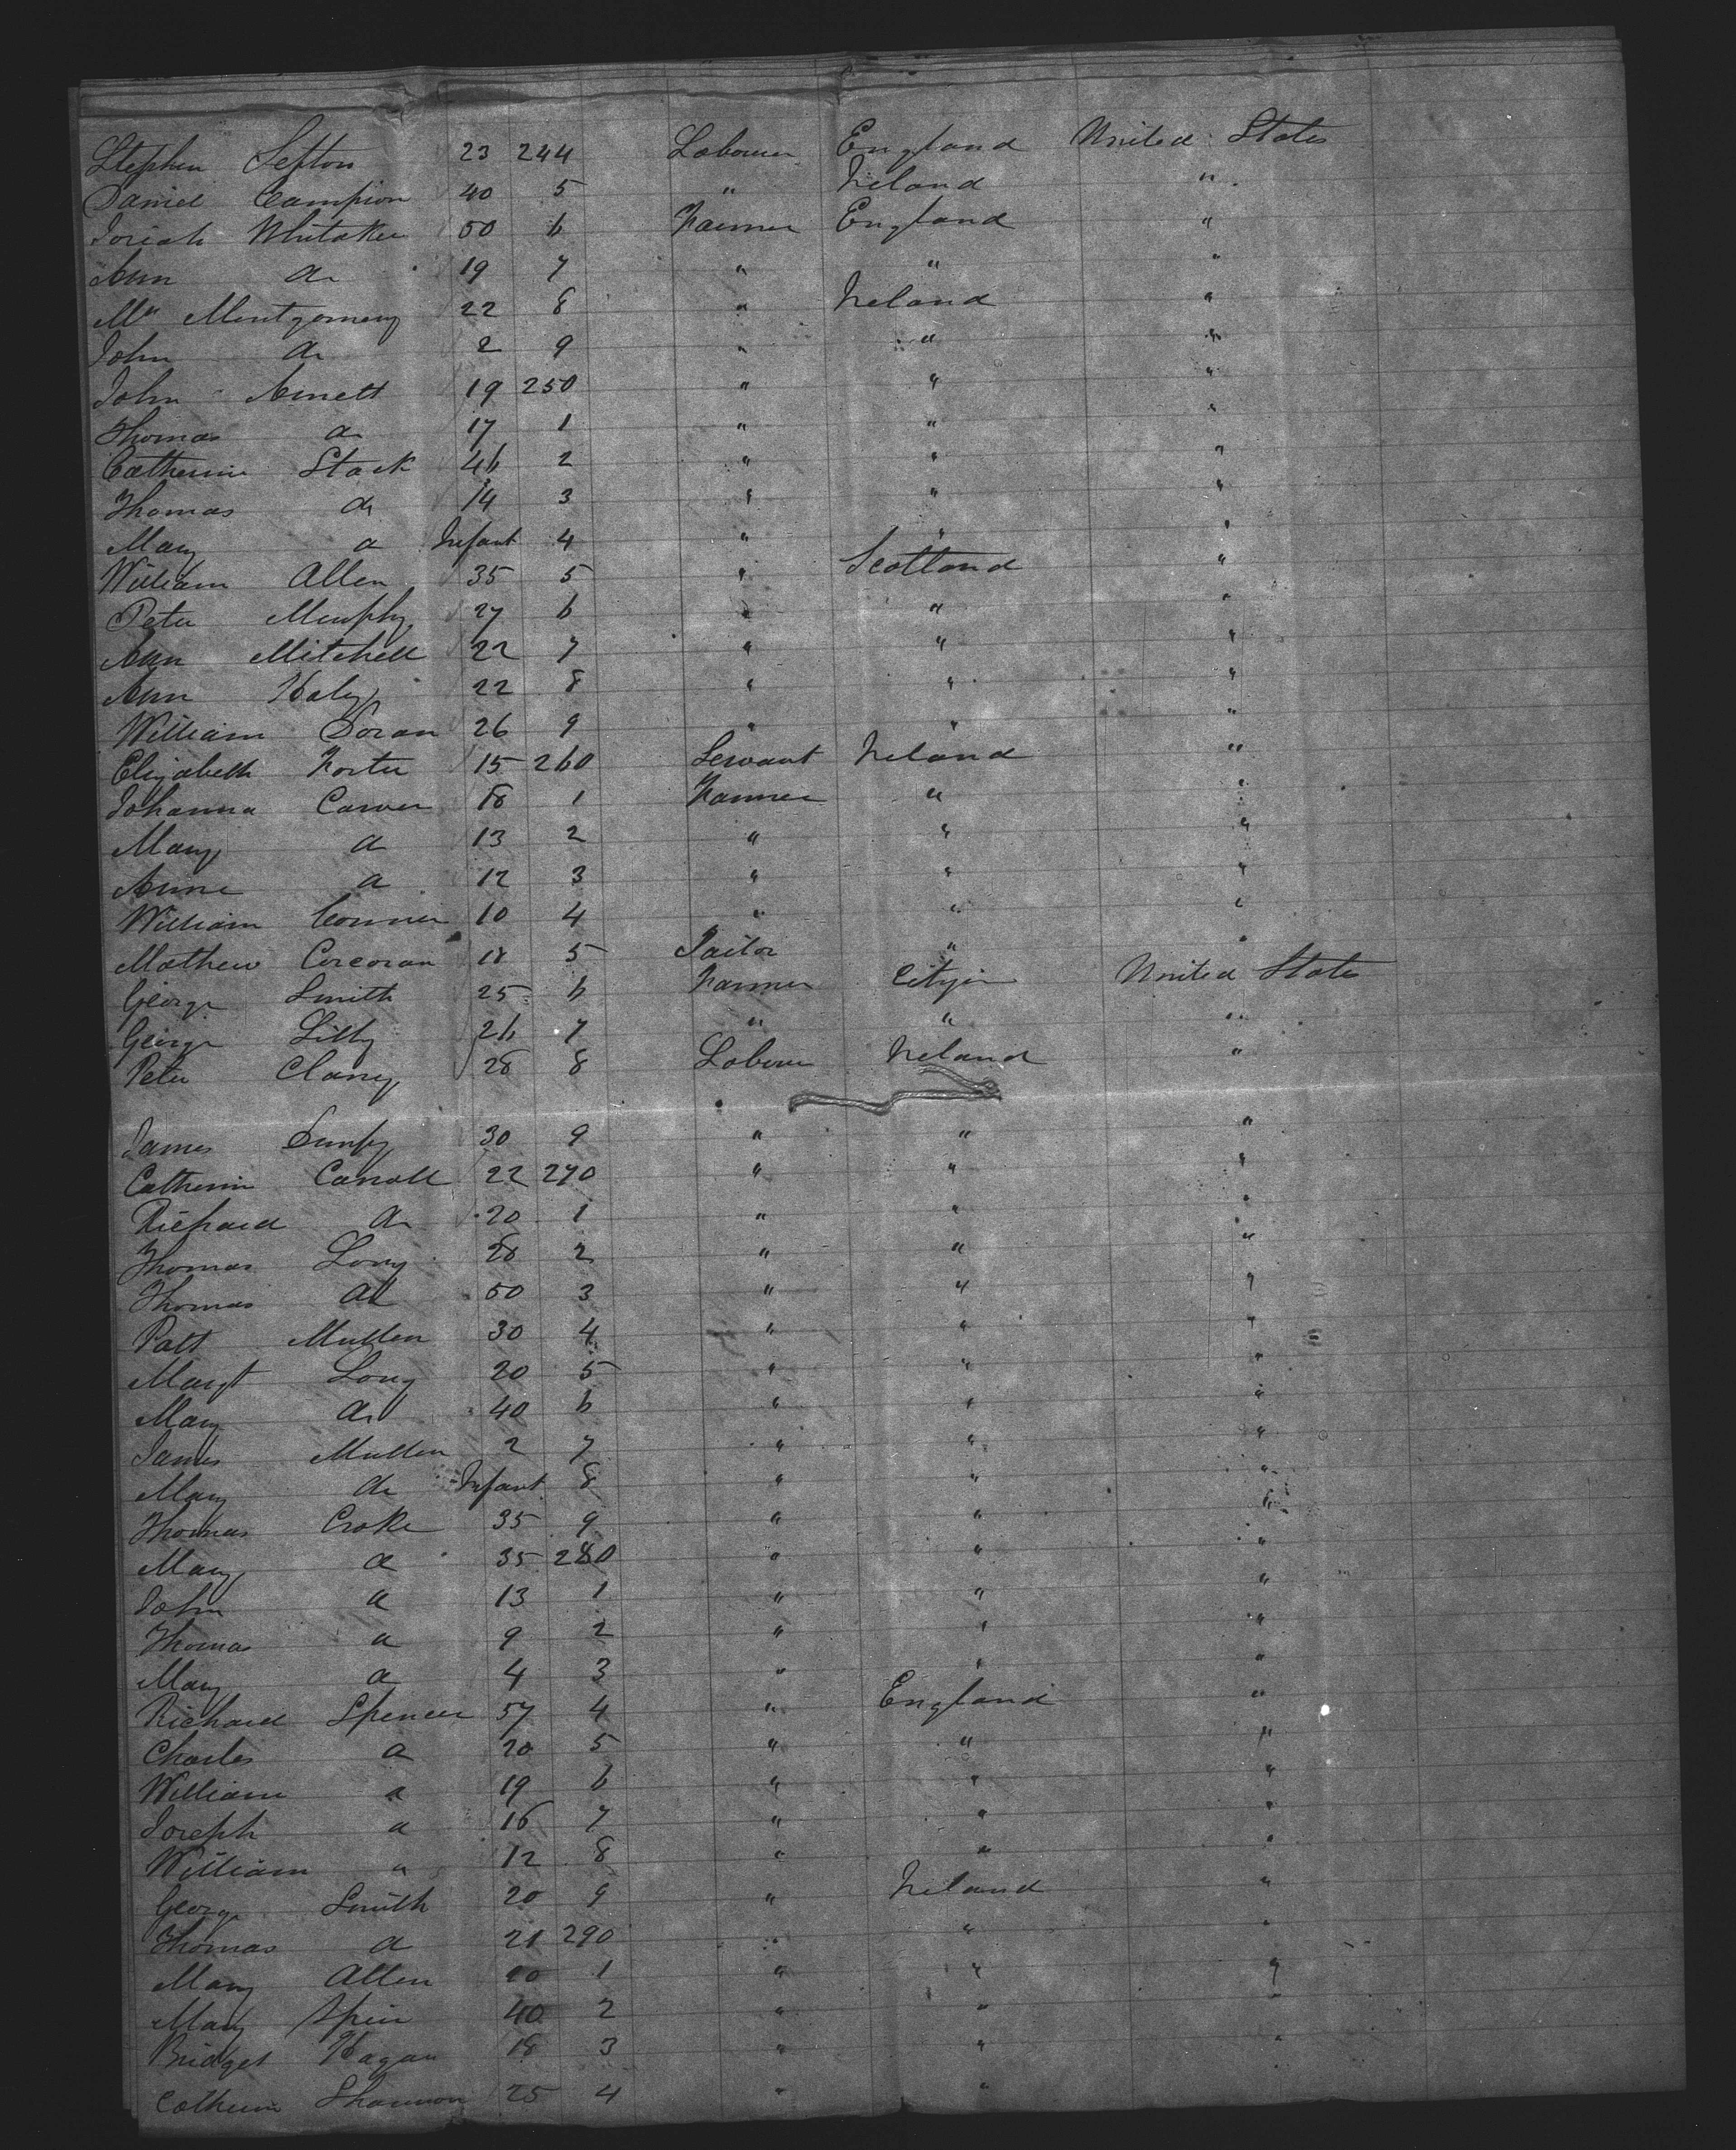 Stephen Sefton 23 244 Labourer England United States
Daniel Campion 40 5 " Ireland "
Josiah Whitaker 50 6 Farmer England "
Ann do 19 7 " " "
Mrs Montgomery 22 8 " Ireland "
John do 2 9 " " "
John Arnett 19 250 " " "
Thomas do 17 1 " " "
Catherine Stack 46 2 " " "
Thomas do 14 3 " " "
Mary do Infant 4 " " "
William Allen 35 5 " Scotland "
Peter Murphy 27 6 " " "
Ann Mitchell 22 7 " " "
Ann Haley 22 8 " " "
William Doran 26 9 " " "
Elizabeth Porter 15 260 Servant Ireland "
Johanna Carver 18 1 Farmer " "
Mary do 13 2 " " "
Anne do 12 3 " " "
William Conner 10 4 " " "
Mathew Corcoran 18 5 Tailor " "
George Smith 25 6 Farmer Citizen United States
George Lilly 26 7 " " "
Peter Clancy 28 8 Labour Ireland "
James Dunfy 30 9 " " "
Catherine Carroll 22 270 " " "
Richard do 20 1 " " "
Thomas Long 28 2 " " "
Thomas do 50 3 " " "
Patt Mullen 30 4 " " "
Margt Long 20 5 " " "
Mary do 40 6 " " "
James Mullen 2 7 " " "
Mary do Infant 8 " " "
Thomas Croke 35 9 " " "
Mary do 35 280 " " "
John do 13 1 " " "
Thomas do 9 2 " " "
Mary do 4 3 " " "
Richard Spencer 57 4 " England "
Charles do 20 5 " " "
William do 19 6 " " "
Joseph do 16 7 " " "
William " 12 8 " " "
George Smith 20 9 " Ireland "
Thomas do 21 290 " " "
Mary Allen 20 1 " " "
Mary 40 2 " " "
Bridget Hagan 18 3 " " "
Catherine Shannon 25 4 " "